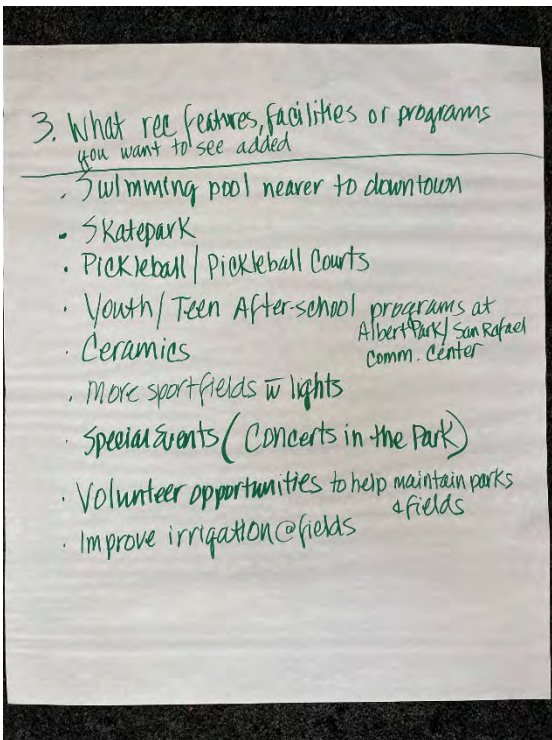 3. What rec features, facilities or programs
you want to see added
• Swimming pool nearer to downtown
• Skatepark
• Pickleball / Pickleball Courts
• Youth / Teen After-school programs at
Albert Park / San Rafael
Comm. Center
• Ceramics
• More sportfields w̅ lights
• Special Events (Concerts in the Park)
• Volunteer opportunities to help maintain parks
& fields
• Improve irrigation @ fields